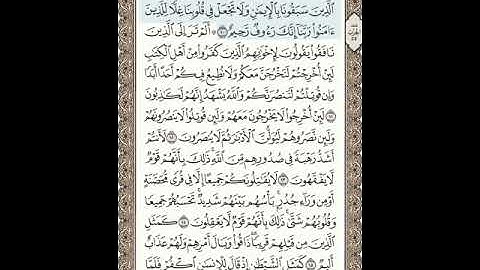 ٱلَّذِينَ سَبَقُونَا بِٱلْإِيمَٰنِ وَلَا تَجْعَلْ فِى قُلُوبِنَا غِلًّا لِّلَّذِينَ
ءَامَنُوا۟ رَبَّنَآ إِنَّكَ رَءُوفٌ رَّحِيمٌ ١٠ ۞ أَلَمْ تَرَ إِلَى ٱلَّذِينَ
نَافَقُوا۟ يَقُولُونَ لِإِخْوَٰنِهِمُ ٱلَّذِينَ كَفَرُوا۟ مِنْ أَهْلِ ٱلْكِتَٰبِ
لَئِنْ أُخْرِجْتُمْ لَنَخْرُجَنَّ مَعَكُمْ وَلَا نُطِيعُ فِيكُمْ أَحَدًا أَبَدًا
وَإِن قُوتِلْتُمْ لَنَنصُرَنَّكُمْ وَٱللَّهُ يَشْهَدُ إِنَّهُمْ لَكَٰذِبُونَ
١١ لَئِنْ أُخْرِجُوا۟ لَا يَخْرُجُونَ مَعَهُمْ وَلَئِن قُوتِلُوا۟ لَا يَنصُرُونَهُمْ
وَلَئِن نَّصَرُوهُمْ لَيُوَلُّنَّ ٱلْأَدْبَٰرَ ثُمَّ لَا يُنصَرُونَ ١٢ لَأَنتُمْ
أَشَدُّ رَهْبَةً فِى صُدُورِهِم مِّنَ ٱللَّهِ ۚ ذَٰلِكَ بِأَنَّهُمْ قَوْمٌ
لَّا يَفْقَهُونَ ١٣ لَا يُقَٰتِلُونَكُمْ جَمِيعًا إِلَّا فِى قُرًى مُّحَصَّنَةٍ
أَوْ مِن وَرَآءِ جُدُرٍۭ ۚ بَأْسُهُم بَيْنَهُمْ شَدِيدٌ ۚ تَحْسَبُهُمْ جَمِيعًا
وَقُلُوبُهُمْ شَتَّىٰ ۚ ذَٰلِكَ بِأَنَّهُمْ قَوْمٌ لَّا يَعْقِلُونَ ١٤ كَمَثَلِ
ٱلَّذِينَ مِن قَبْلِهِمْ قَرِيبًا ۖ ذَاقُوا۟ وَبَالَ أَمْرِهِمْ وَلَهُمْ عَذَابٌ
أَلِيمٌ ١٥ كَمَثَلِ ٱلشَّيْطَٰنِ إِذْ قَالَ لِلْإِنسَٰنِ ٱكْفُرْ فَلَمَّا